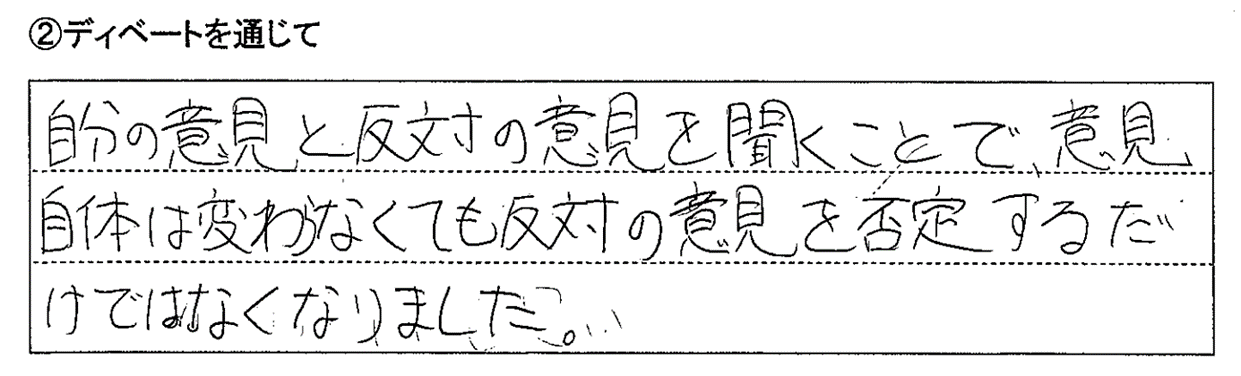 ②ディベートを通じて
自分の意見と反対の意見を聞くことで、意見
自体は変わらなくても反対の意見を否定するだ
けではなくなりました。